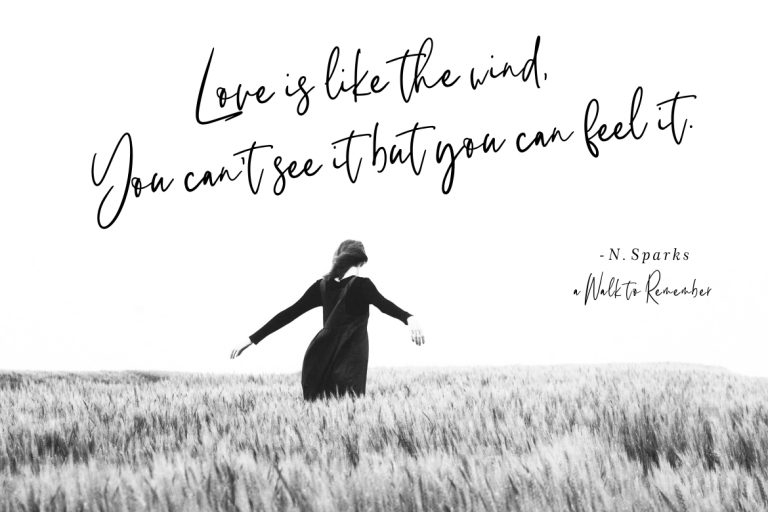 Love is like the wind,
You can't see it but you can feel it.
- N. Sparks
a Walk to Remember